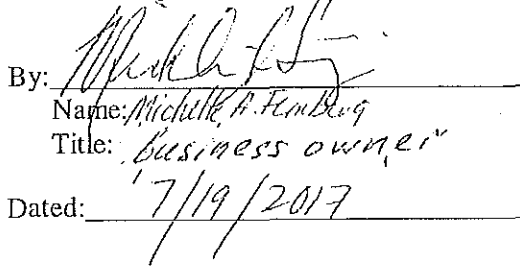 By:
Name: Michelle A.
Title: business owner
Dated: 7/19/2017